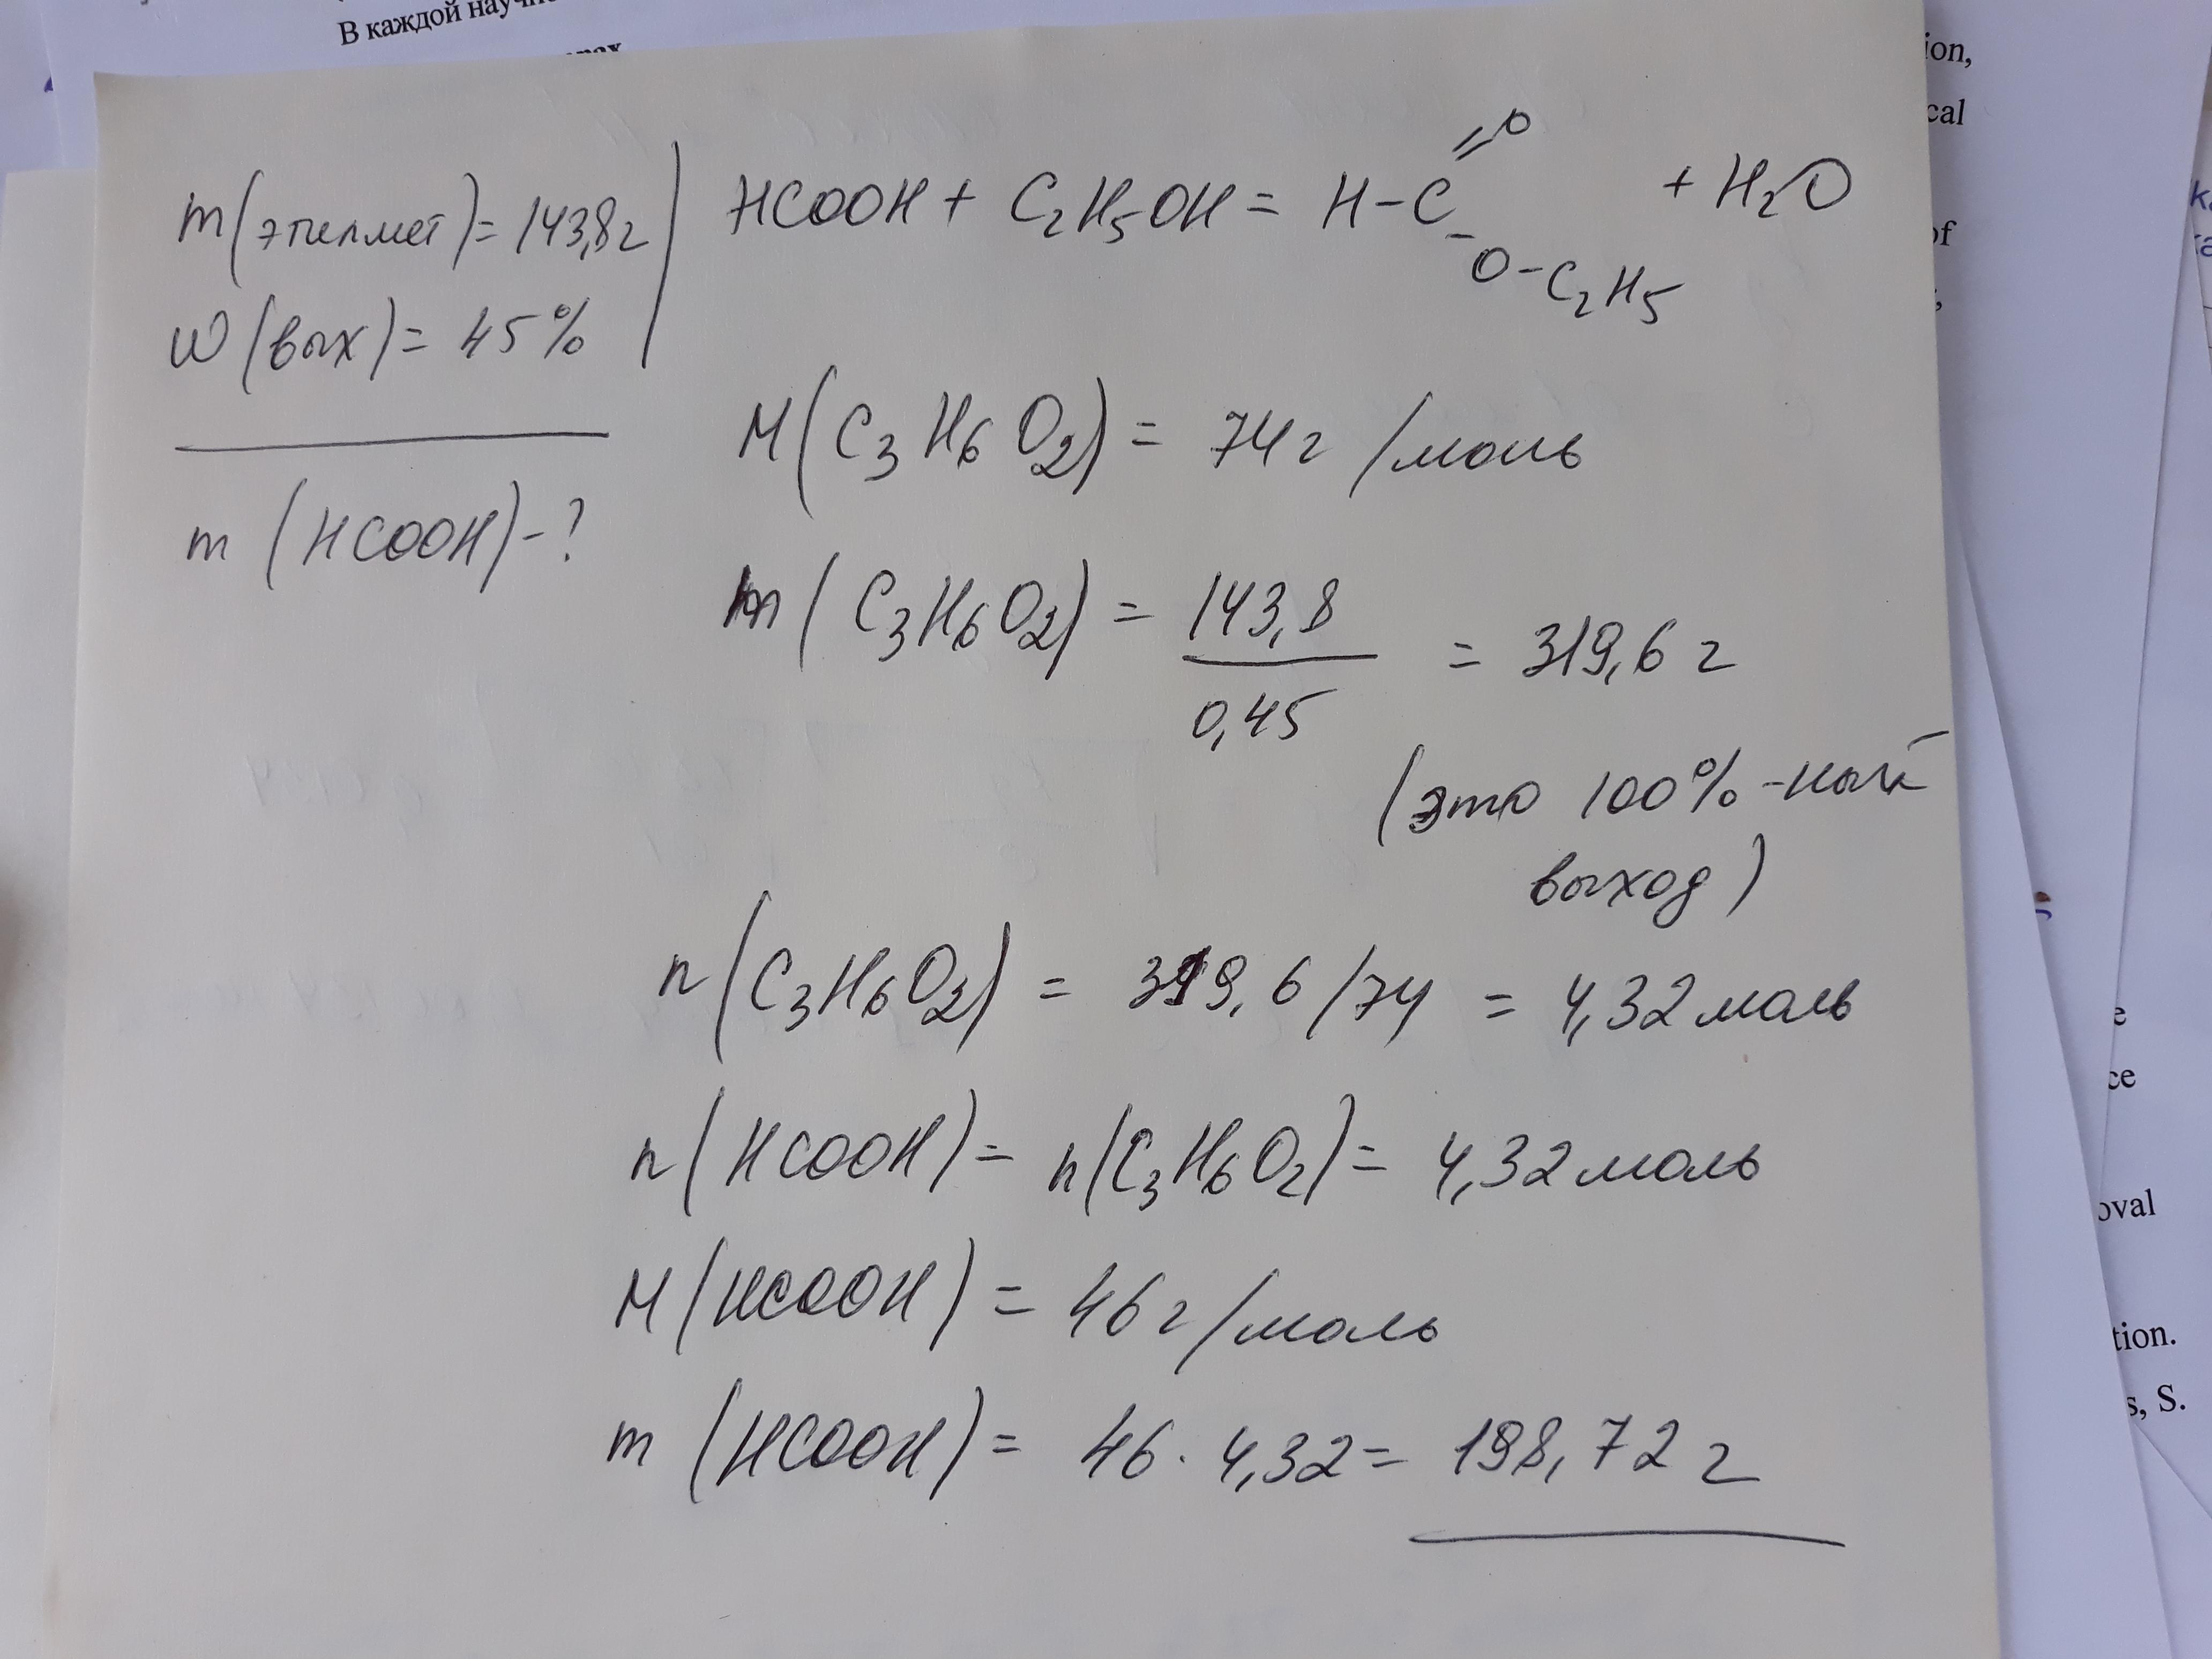 В каждой научн
m(этилмет) = 143,8 г
w(вых) = 45%
m(HCOOH) - ?
HCOOH + C₂H₅OH = H-C =O -O-C₂H₅ + H₂O
M(C₃H₆O₂) = 74 г/моль
m(C₃H₆O₂) = 143,8 / 0,45 = 319,6 г
(это 100%-ный
выход)
n(C₃H₆O₂) = 319,6/74 = 4,32 моль
n(HCOOH) = n(C₃H₆O₂) = 4,32 моль
M(HCOOH) = 46 г/моль
m(HCOOH) = 46 · 4,32 = 198,72 г
ion,
cal
of
e
ce
oval
tion.
s, S.